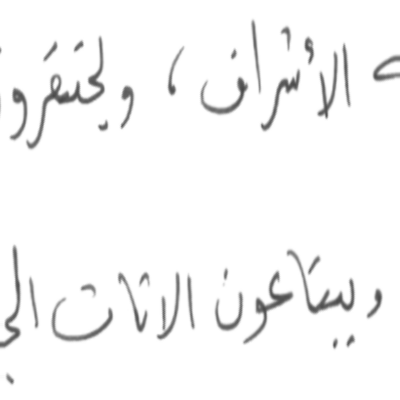 الأشراف ، ويحتقرو
ويبتاعون الاثاث الجي